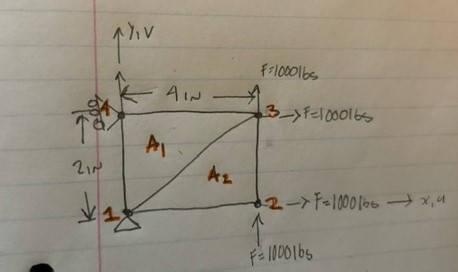 y,v
F=1000lbs
4IN
4
3
F=1000lbs
A1
2IN
A2
1
2
F=1000lbs
x,u
F=1000lbs